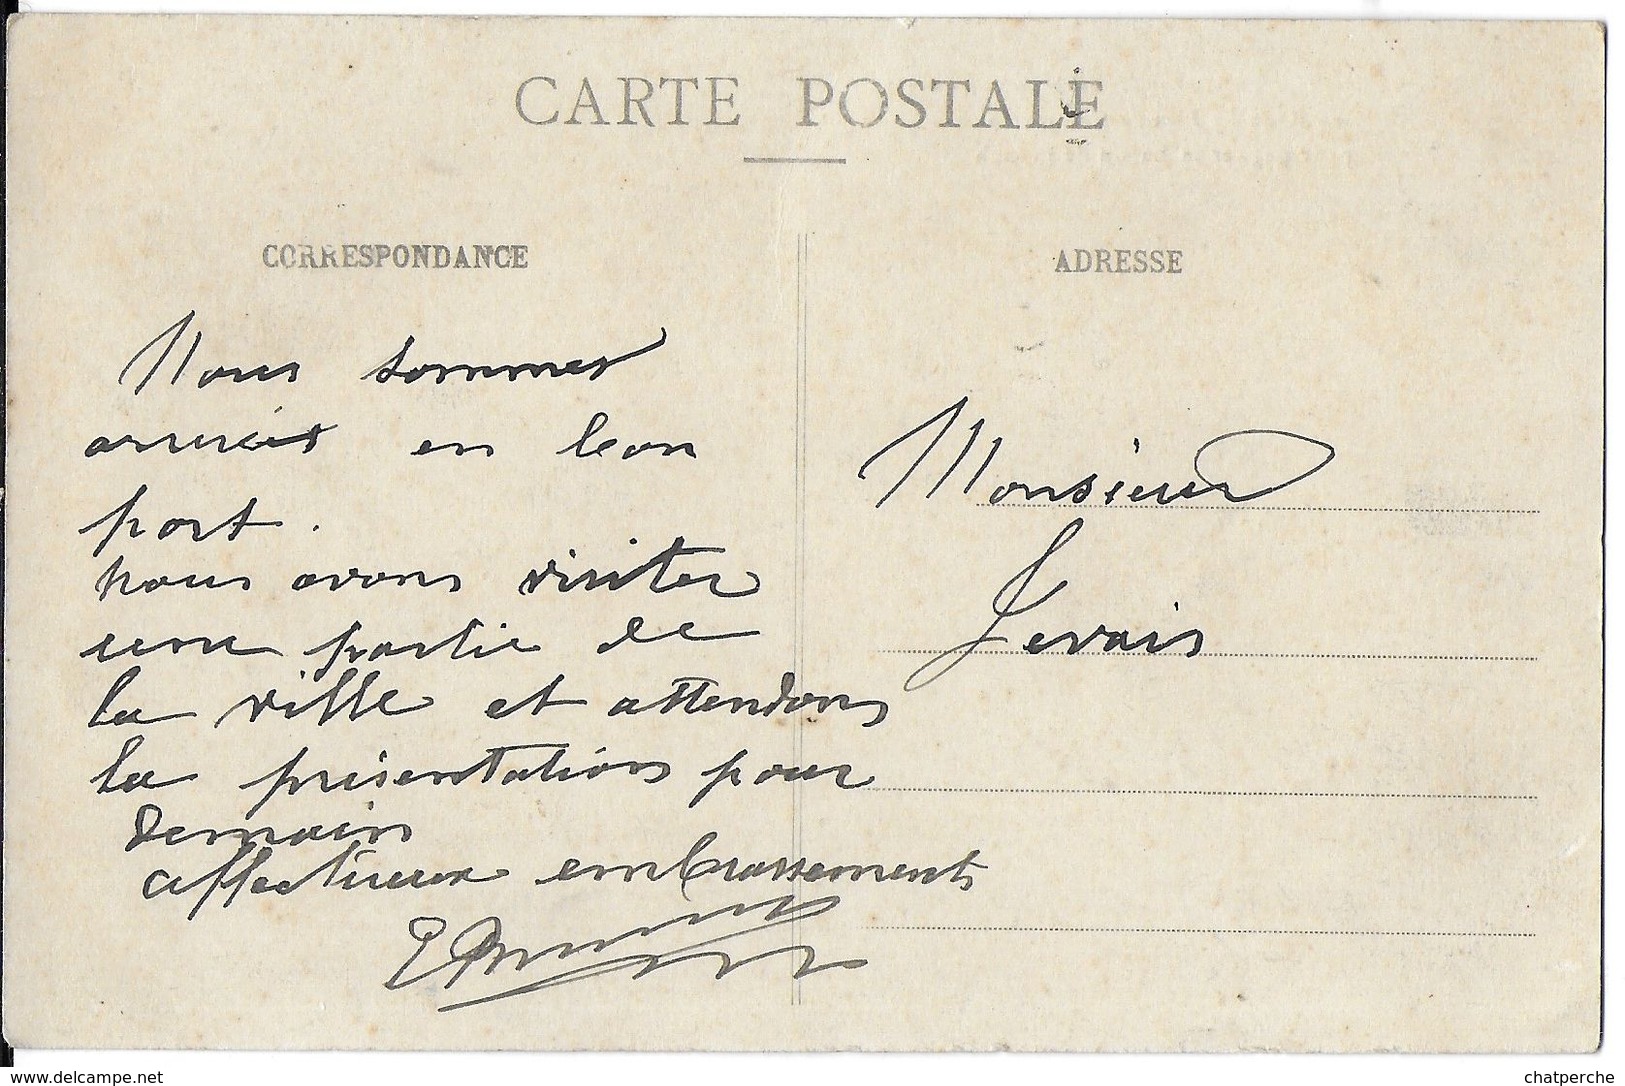 CARTE POSTALE
CORRESPONDANCE
ADRESSE
Nous sommes
arrivés en bon
port.
nous avons visiter
une partie de
la ville et attendons
la présentations pour
demain
affectueux embrassements
Monsieur
Gervais
www.delcampe.net
chatperche